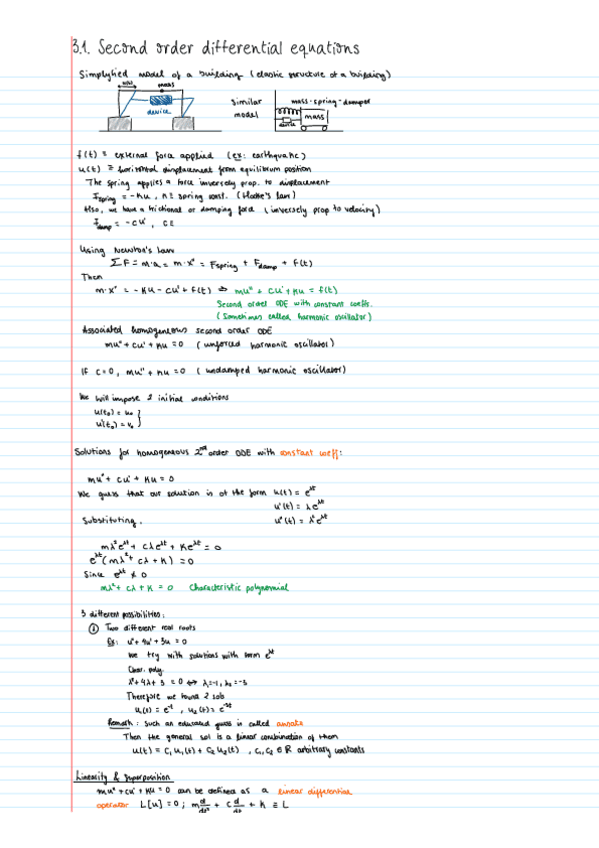 3.1. Second order differential equations
Simplyfied model of a building (elastic structure of a building)
u(t) mass
device
Similar model
mass-spring-damper
mass
device
f(t) ≡ external force applied (ex: earthquake)
u(t) ≡ horizontal displacement from equilibrium position
The spring applies a force inversely prop. to displacement
Fspring = -Ku, K ≡ spring const. (Hooke's law)
Also, we have a frictional or damping force (inversely prop to velocity)
Fdamp = -cu',
Using Newton's Law
ΣF = m·a = m·x'' = Fspring + Fdamp + f(t)
Then
m·x'' = -Ku - cu' + f(t) ⇒ mu'' + cu' + Ku = f(t)
Second order ODE with constant coeffs.
(Sometimes called harmonic oscillator)
Associated homogeneous second order ODE
mu'' + cu' + Ku = 0 (unforced harmonic oscillator)
If c=0, mu'' + Ku = 0 (undamped harmonic oscillator)
We will impose 2 initial conditions
u(t₀) = u₀
u'(t₀) = v₀ }
Solutions for homogeneous 2nd order ODE with constant coeff:
mu'' + cu' + Ku = 0
We guess that our solution is of the form u(t) = e^λt
u'(t) = λe^λt
Substituting, u''(t) = λ²e^λt
mλ²e^λt + cλe^λt + Ke^λt = 0
e^λt(mλ² + cλ + K) = 0
Since e^λt ≠ 0
mλ² + cλ + K = 0 Characteristic polynomial
3 different possibilities:
① Two different real roots
Ex: u'' + 4u' + 3u = 0
We try with solutions with form e^λt
Char. poly.
λ² + 4λ + 3 = 0 ⇔ λ₁=-1, λ₂=-3
Therefore we found 2 sols
u₁(t) = e^-t, u₂(t) = e^-3t
Remark: Such an educated guess is called ansatz
Then the general sol is a linear combination of them
u(t) = C₁u₁(t) + C₂u₂(t), C₁,C₂ ∈ R arbitrary constants
Linearity & Superposition
mu'' + cu' + Ku = 0 can be defined as a linear differential
operator L[u] = 0; m d²/dt² + c d/dt + K ≡ L